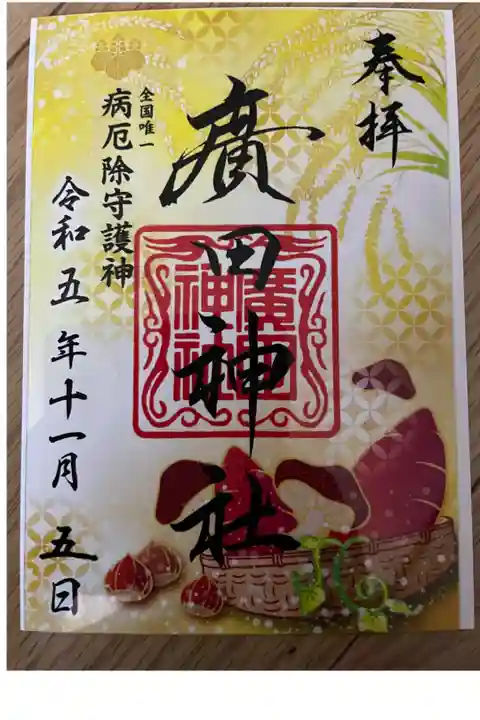 奉拝
廣田神社
全国唯一
病厄除守護神
令和五年十一月五日
廣田
神社